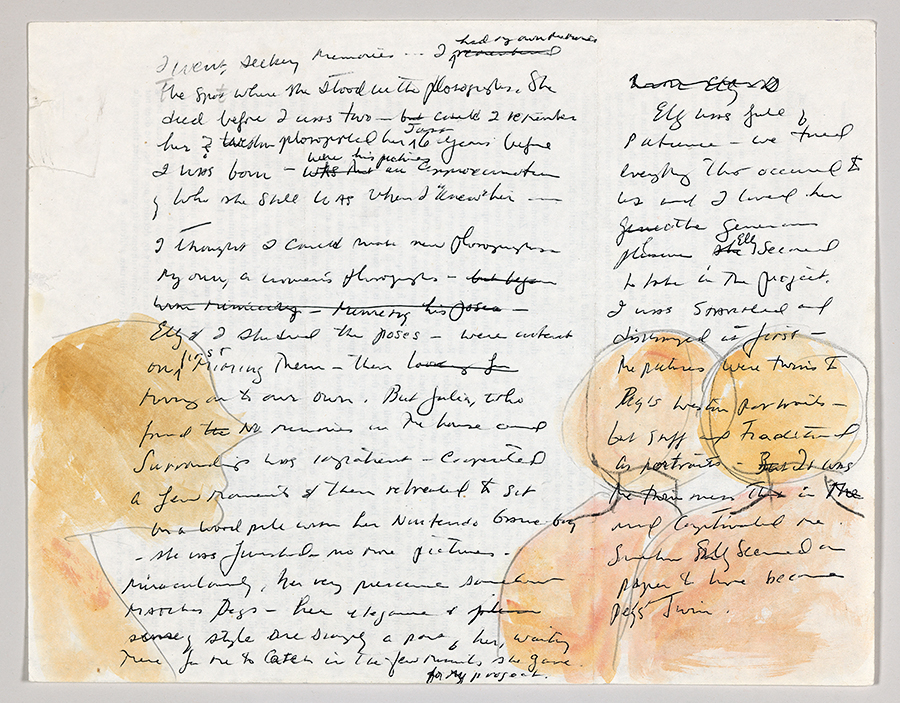 I went, seeking memories -- I had my own memories remembered
the spot where she stood in the photographs. She
died before I was two – but could I remember
her? Weston photographed her 16 years before
I was born – were his pictures was that an approximation
of who she still was when I "knew" her —
I thought I could make new photographs
my own, a woman's photographs – but began
Elly & I studied the poses – were intent
on first miming them – then
moving on to our own. But Julia, who
found the no memories in the house and
surroundings was impatient – cooperated
a few moments & then retreated to sit
on a wood pile with her Nintendo Game boy
– she was finished – no more pictures.
Miraculously, her very presence somehow
matches Pegs – her elegance &
sense of style are surely a part of her, waiting
there for me to catch in the few minutes she gave
for my project.
Elly was full of
patience – we tried
everything that occurred to
us and I loved her
generous
pleasure she Elly seemed
to take in the project.
I was startled and
discouraged at first –
the pictures were twins to
Peg's Weston portraits –
but stiff and traditional
as portraits – But it was
the twin-ness that in the
end captivated me.
Somehow Elly seemed on
paper to have become
Peg's twin.